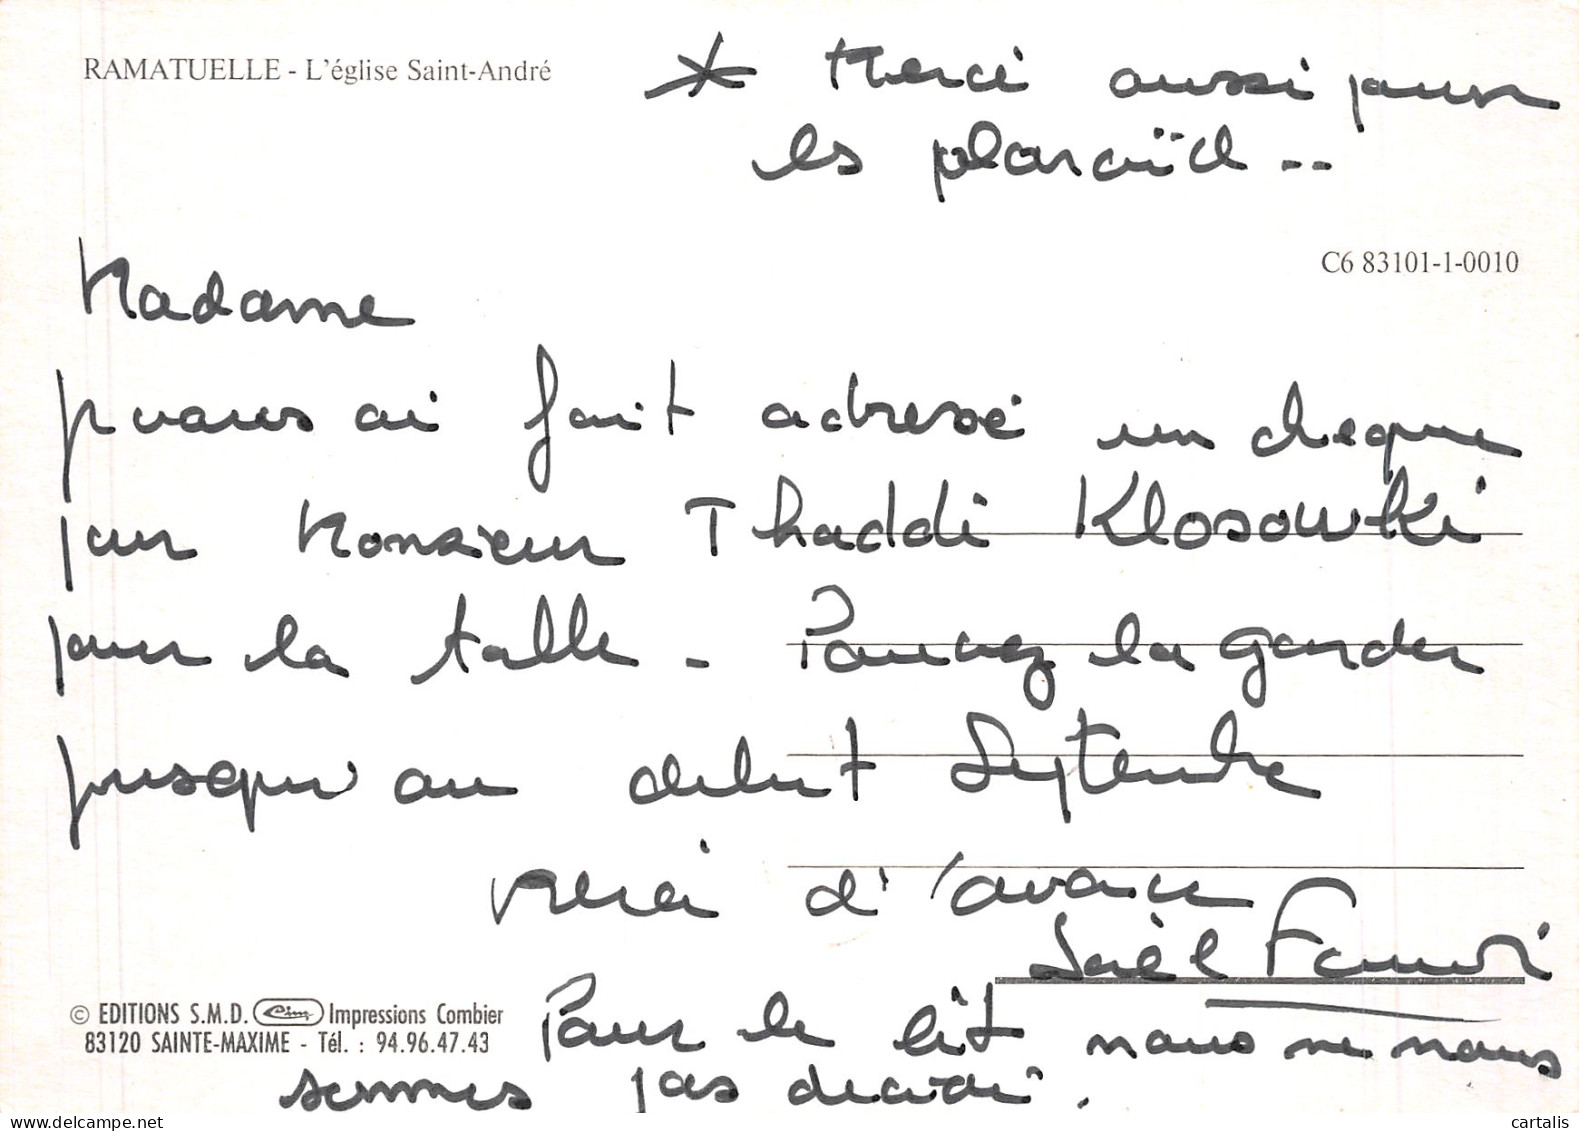 RAMATUELLE - L'église Saint-André
* Merci aussi pour
les polaroïd --
C6 83101-1-0010
Madame
je vous ai fait adresse un cheque
par Monsieur Thaddé Klosowski
pour la table - Pouvez la garder
jusqu'au debut Septembre
Merci d'avance
Pour le lit nous ne nous
sommes pas decidé.
© EDITIONS S.M.D. Cim Impressions Combier
83120 SAINTE-MAXIME - Tél. : 94.96.47.43
www.delcampe.net
cartalis